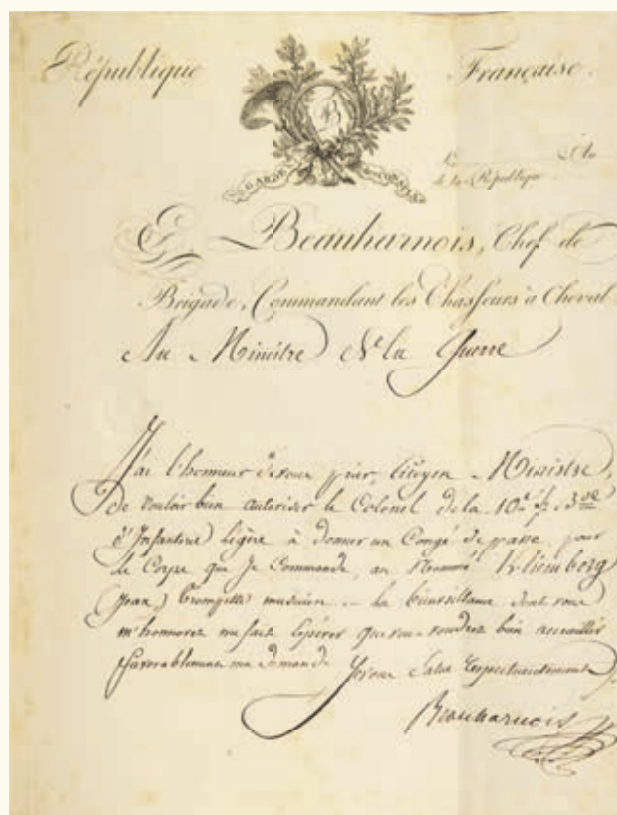 République Française.
B
GARDE DES CONSULS
L An
de la République
E. Beauharnois, Chef de
Brigade, Commandant les Chasseurs à Cheval
Au Ministre de la Guerre
J'ai l'honneur de vous prier, Citoyen Ministre,
de vouloir bien autoriser le Colonel de la 10e
d'Infanterie Légère à donner un Congé de passe pour
le Corps que Je Commande, au Nommé Kliemberg
(Jean) trompette musicien – la bienveillance dont vous
m'honorez me fait Espérer que vous voudrez bien accueillir
favorablement ma demande Je vous Salue Respectueusement
Beauharnois